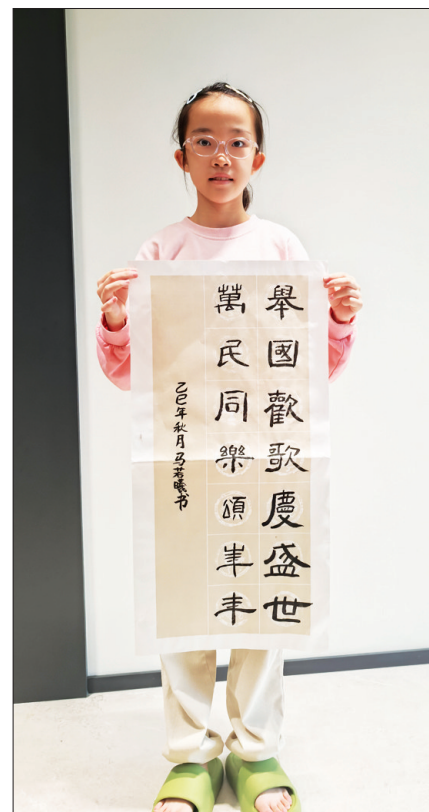 舉國歡歌慶盛世
萬民同樂頌丰年
乙巳年秋月马若曦书